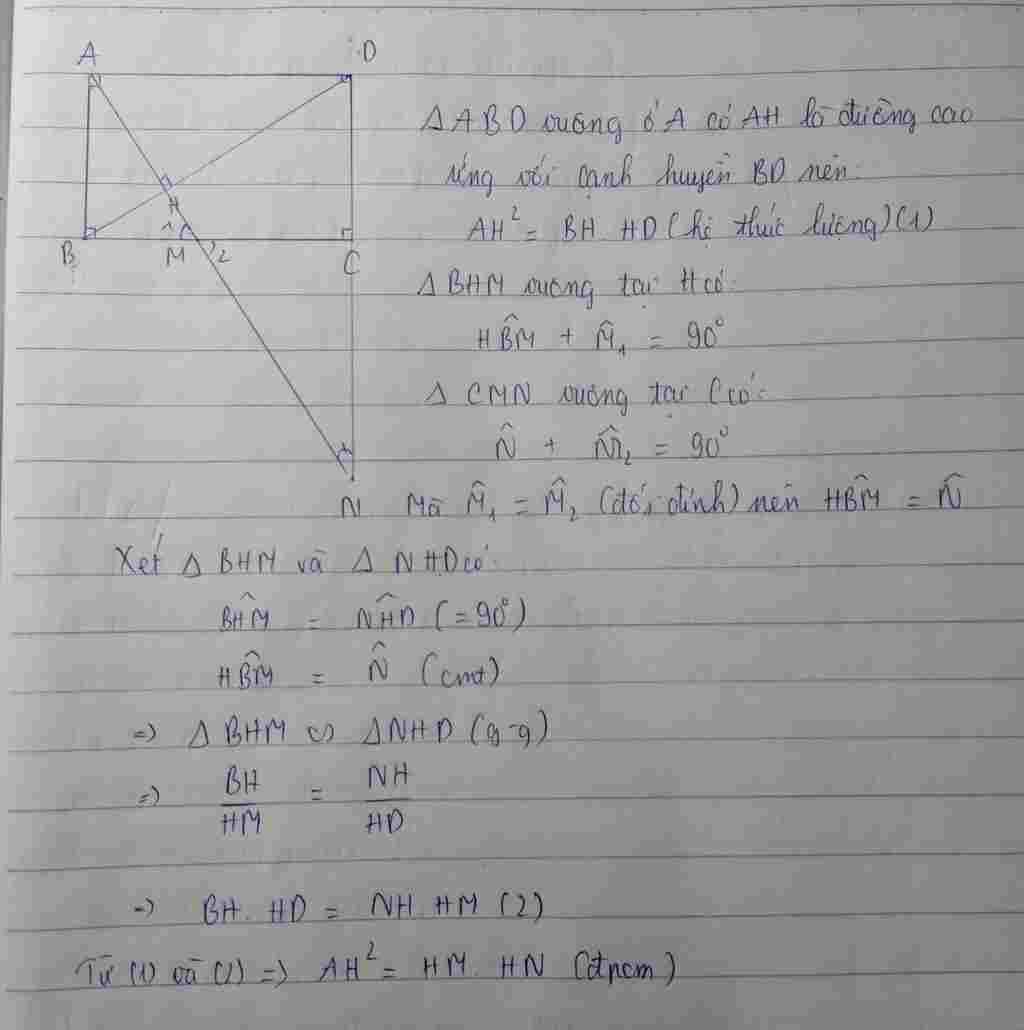 A
D
H
B
1
M
2
C
N
Δ ABD vuông ở A có AH là đường cao
ứng với cạnh huyền BD nên:
AH² = BH . HD (hệ thức lượng) (1)
Δ BHM vuông tại H có:
HB̂M + M̂₁ = 90°
Δ CMN vuông tại C có:
N̂ + M̂₂ = 90°
Mà M̂₁ = M̂₂ (đối đỉnh) nên HB̂M = N̂
Xét Δ BHM và Δ NHD có:
BĤM = NĤD (=90°)
HB̂M = N̂ (cmt)
=> Δ BHM ∽ ΔNHD (g-g)
=> BH/HM = NH/HD
=> BH . HD = NH . HM (2)
Từ (1) và (2) => AH² = HM . HN (đpcm)